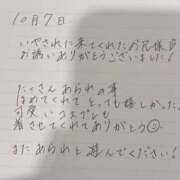 10月7日.
いやされに来てくれたお兄様
お誘いありがとうございました!
たっくさん あられの事
ほめてくれて とっても嬉しかった
可愛いコスプレも
着させてくれてありがとう
またあられと遊んでください!